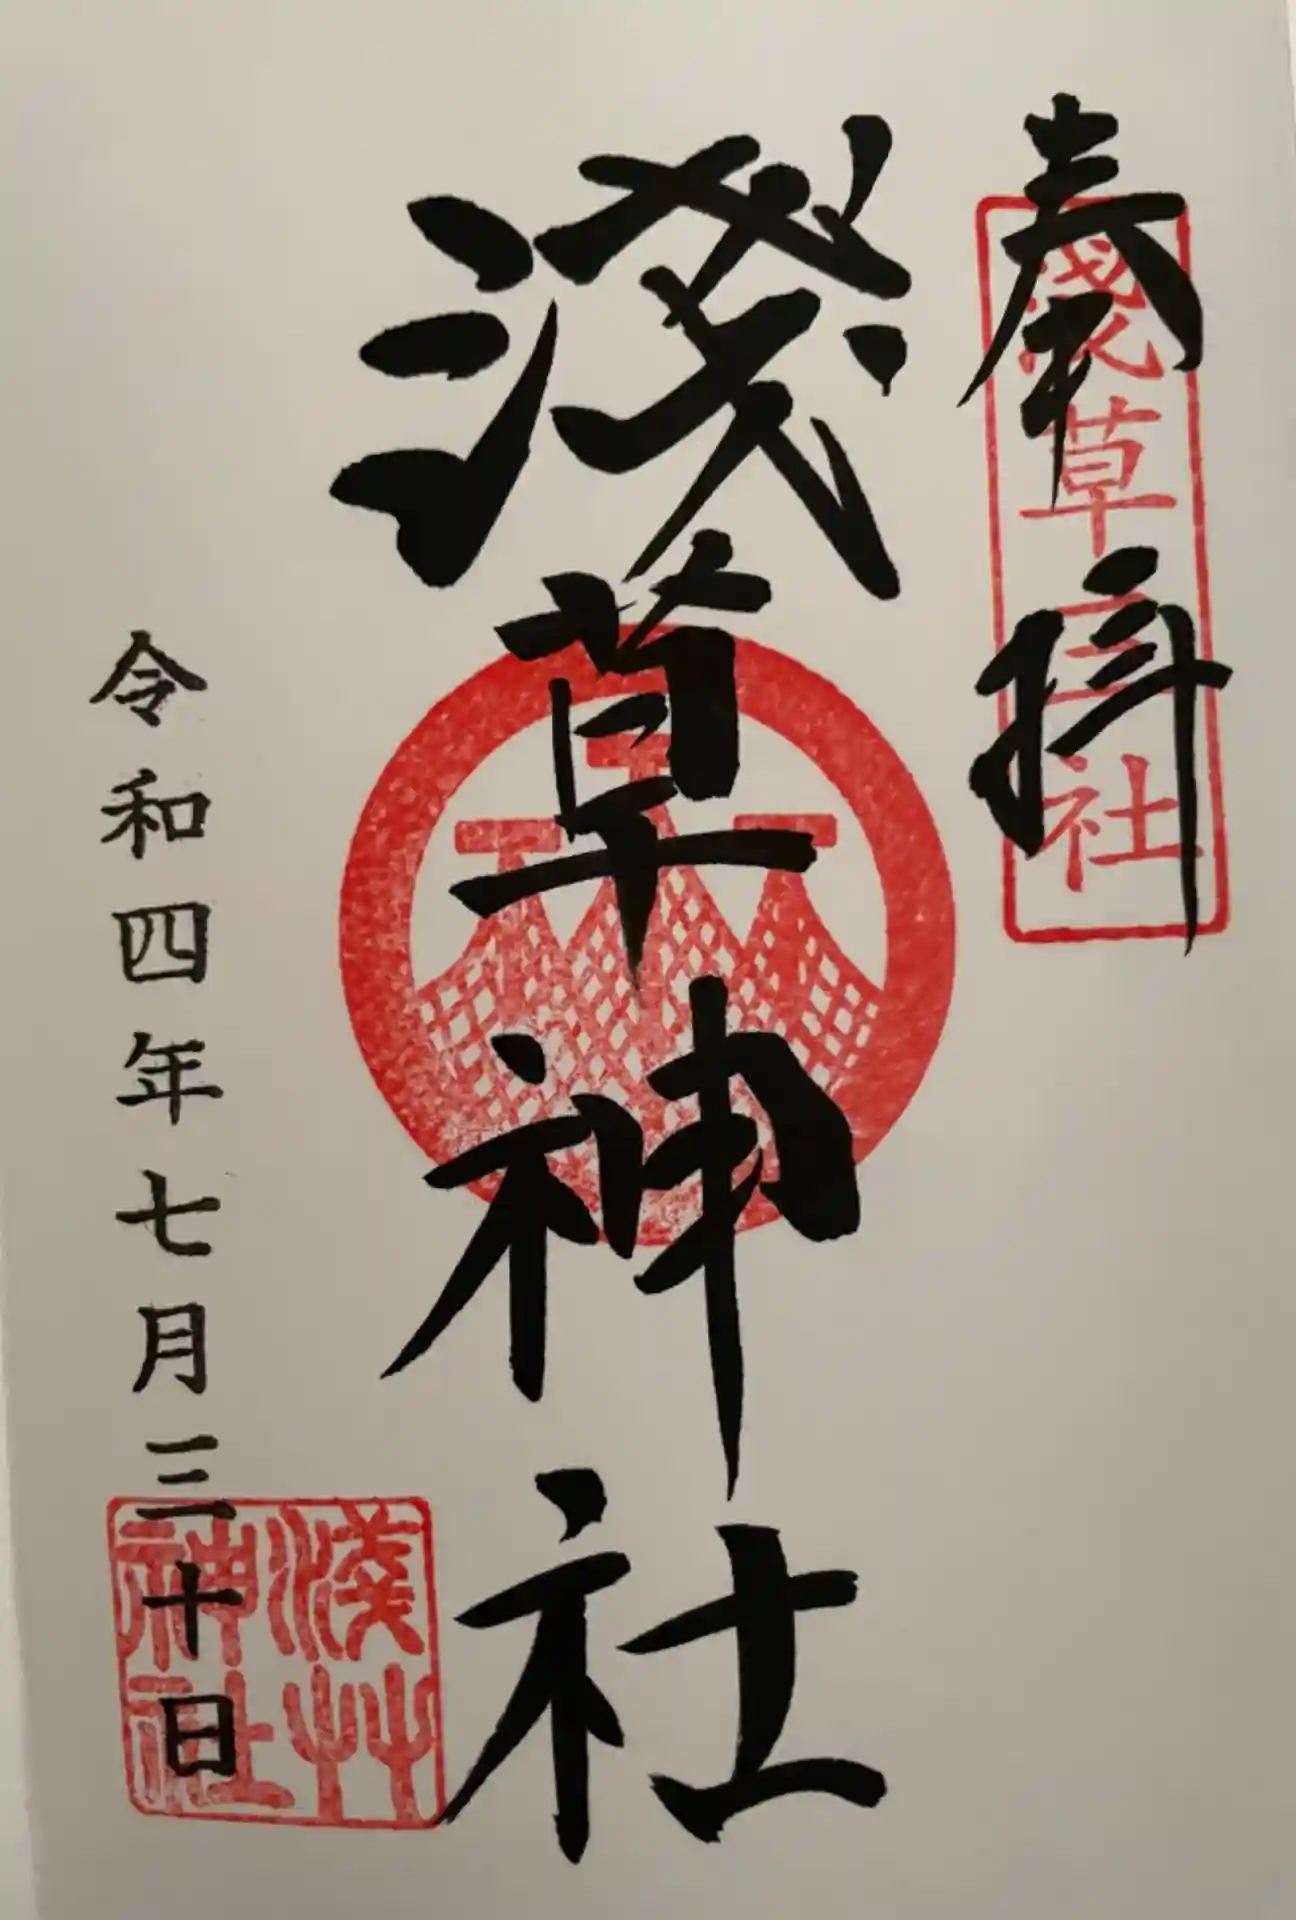 奉拝
淺草三社
淺草神社
令和四年七月三十日
淺艸
神社